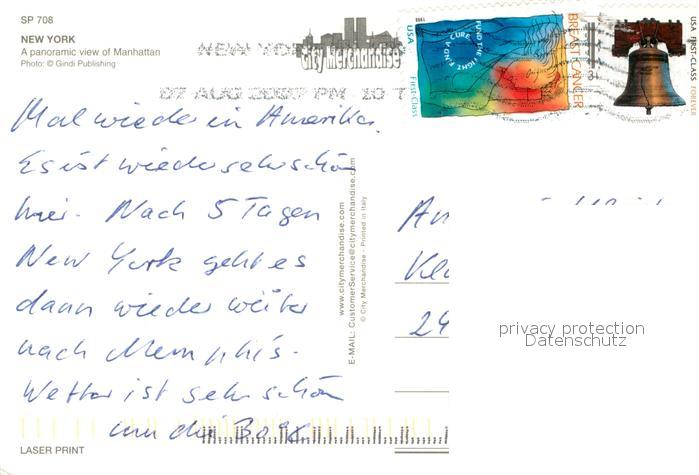 SP 708
NEW YORK
A panoramic view of Manhattan
Photo: © Gindi Publishing
City Merchandise
NEW YO
07 AUG 2007 PM 10 T
USA
First-Class
1998
FUND THE FIGHT. FIND A CURE.
BREAST CANCER
USA FIRST-CLASS FOREVER
Mal wieder in Amerika.
Es ist wieder sehr schön
hier. Nach 5 Tagen
New York geht es
dann wieder weiter
nach Memphis.
Wetter ist sehr schön
um die
www.citymerchandise.com
E-MAIL: CustomerService@citymerchandise.com
© City Merchandise · Printed in Italy
An
24
privacy protection
Datenschutz
LASER PRINT